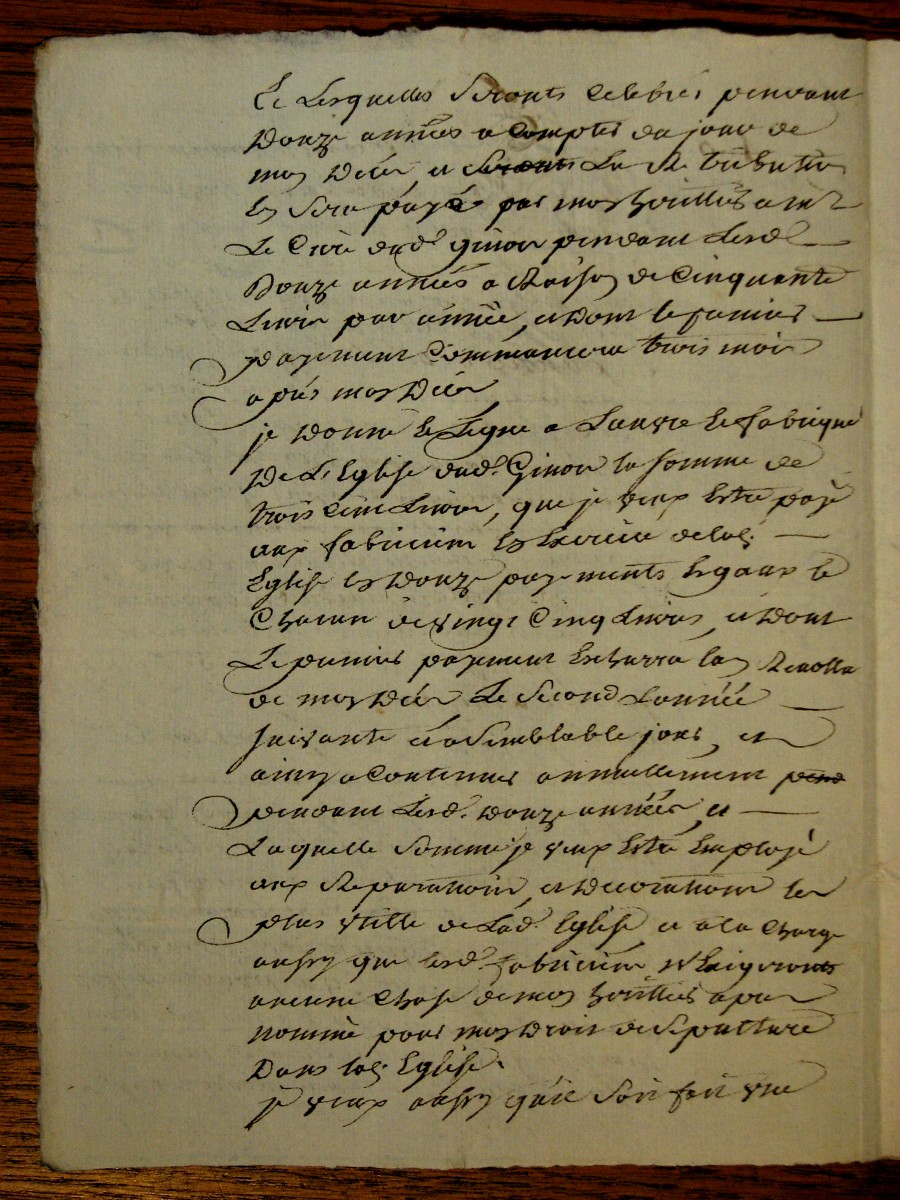 Et Lesquelles Seronts Celebrés pendant
Douze années a Compter du jour de
mon Decés, et Seronts La Retribution
En Sera payé par mon heritier a mr
Le Curé dud. Ginor pendant Lesd.
Douze années a Raison de Cinquante
Livres par année, et Dont le premier
payement Commancera trois mois
aprés mon Decés
je Donne et Legue a L'auvre et fabrique
De L'Eglise dud. Ginor la somme de
trois Cent Livres, que je veux Estre payé
aux fabriciens En Exercice de lad.
Eglise En Douze payements Egaux de
Chacun de vingt Cinq Livres, et Dont
Le premier payement Echerra La Revollu
de mon Decés Le Second L'année
suivante et a Semblable jour, et
ainsy a Continuer annuellement pend
pendant Lesd. Douze années, et
Laquelle Somme je veux Estre Employé
aux Reparations, et Decorations les
plus utille de Lad. Eglise et a la Charge
aussy que lesd. fabriciens N'Exigeronts
aucune Chose de mon heritier apres
Nommé pour mon Droit de Sepulture
Dans lad. Eglise.
je veux aussy qu'il Soit fait une